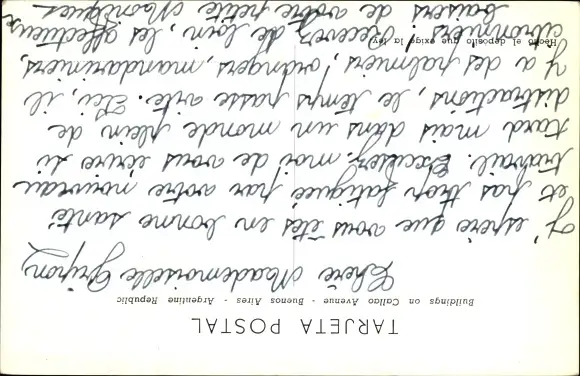 TARJETA POSTAL
Buildings on Callao Avenue - Buenos Aires - Argentine Republic
Chère Mademoiselle Gripon
J'espère que vous êtes en bonne santé
et pas trop fatiguée par votre nouveau
travail. Excusez-moi de vous écrire si
tard mais dans un monde plein de
distractions, le temps passe vite. Ici, il
y a des palmiers, orangers, mandariniers,
Hecho el depósito que exige la ley
citronniers! Recevez de loin, les affectueux
baisers de votre petite Monique